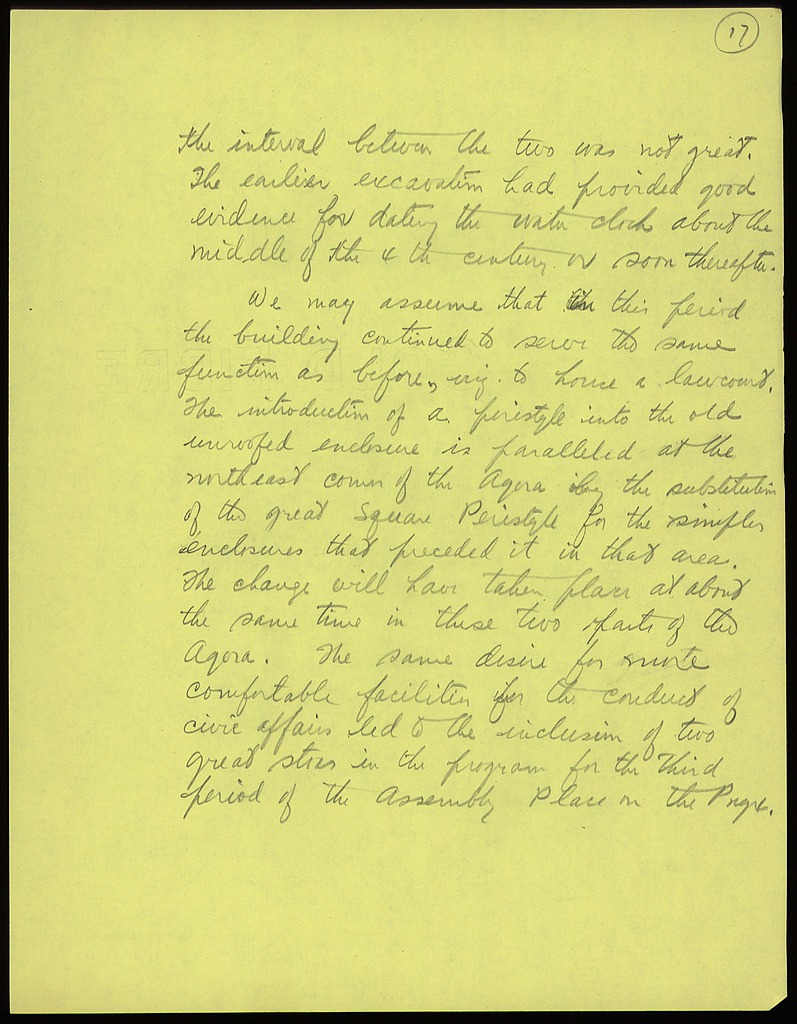 17
the interval between the two was not great.
The earlier excavation had provided good
evidence for dating the water clock about the
middle of the 4 th century or soon thereafter.
We may assume that in this period
the building continued to serve the same
function as before, viz. to house a lawcourt.
The introduction of a peristyle into the old
unroofed enclosure is paralleled at the
northeast corner of the Agora by the substitution
of the great Square Peristyle for the simpler
enclosures that preceded it in that area.
The change will have taken place at about
the same time in these two parts of the
Agora. The same desire for more
comfortable facilities for the conduct of
civic affairs led to the inclusion of two
great stoas in the program for the Third
period of the Assembly Place on the Pnyx.